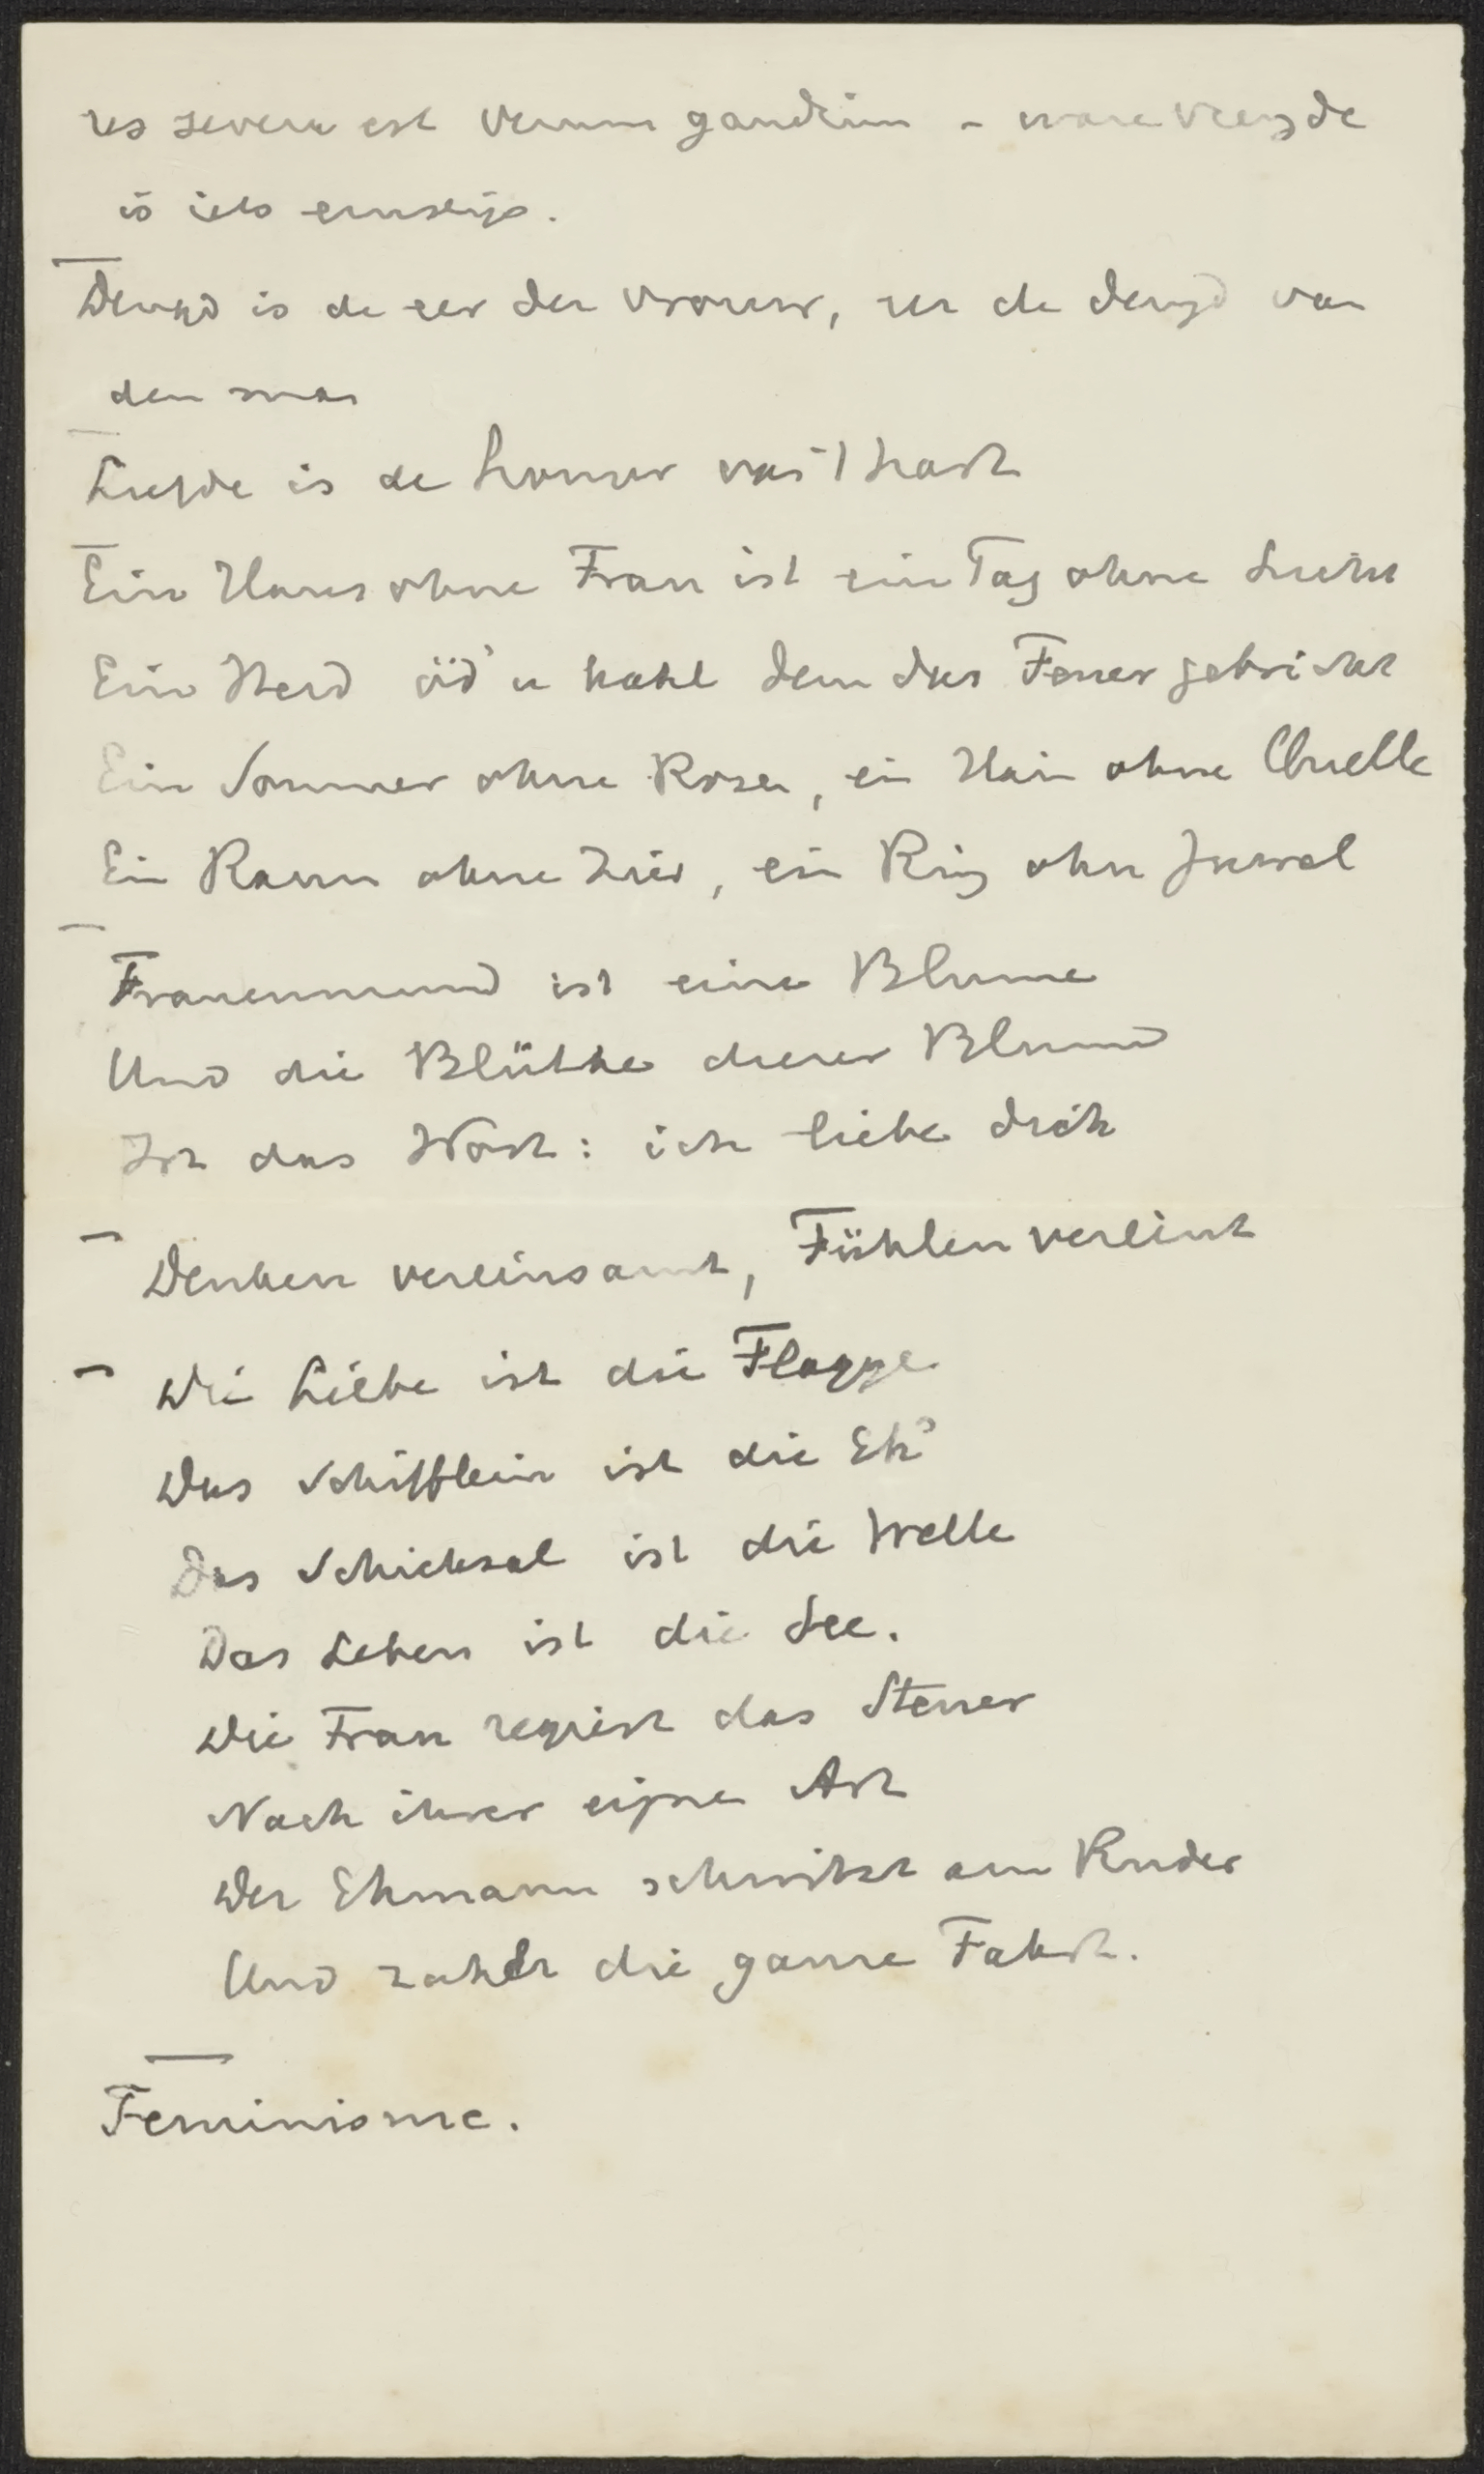 res severa est verum gaudium - ware vreugde
is iets ernstigs.
Deugd is de eer der vrouw, eer de deugd van
den man
Liefde is de honger van 't hart
Ein Haus ohne Frau ist ein Tag ohne Licht
Ein Herd öd' u kahl dem das Feuer gebricht
Ein Sommer ohne Rosen, ein Hain ohne Quelle
Ein Raum ohne Zier, ein Ring ohn Juwel
Frauenmund ist eine Blume
Und die Blüthe dieser Blume
Ist das Wort: ich liebe dich
Denken vereinsamt, Fühlen vereint
Die Liebe ist die Flagge
Das Schifflein ist die Eh'
Das Schicksal ist die Welle
Das Leben ist die See.
Die Frau regiert das Steuer
Nach ihrer eignen Art
Der Ehmann schwitzt am Ruder
Und zahlt die ganze Fahrt.
Feminisme.